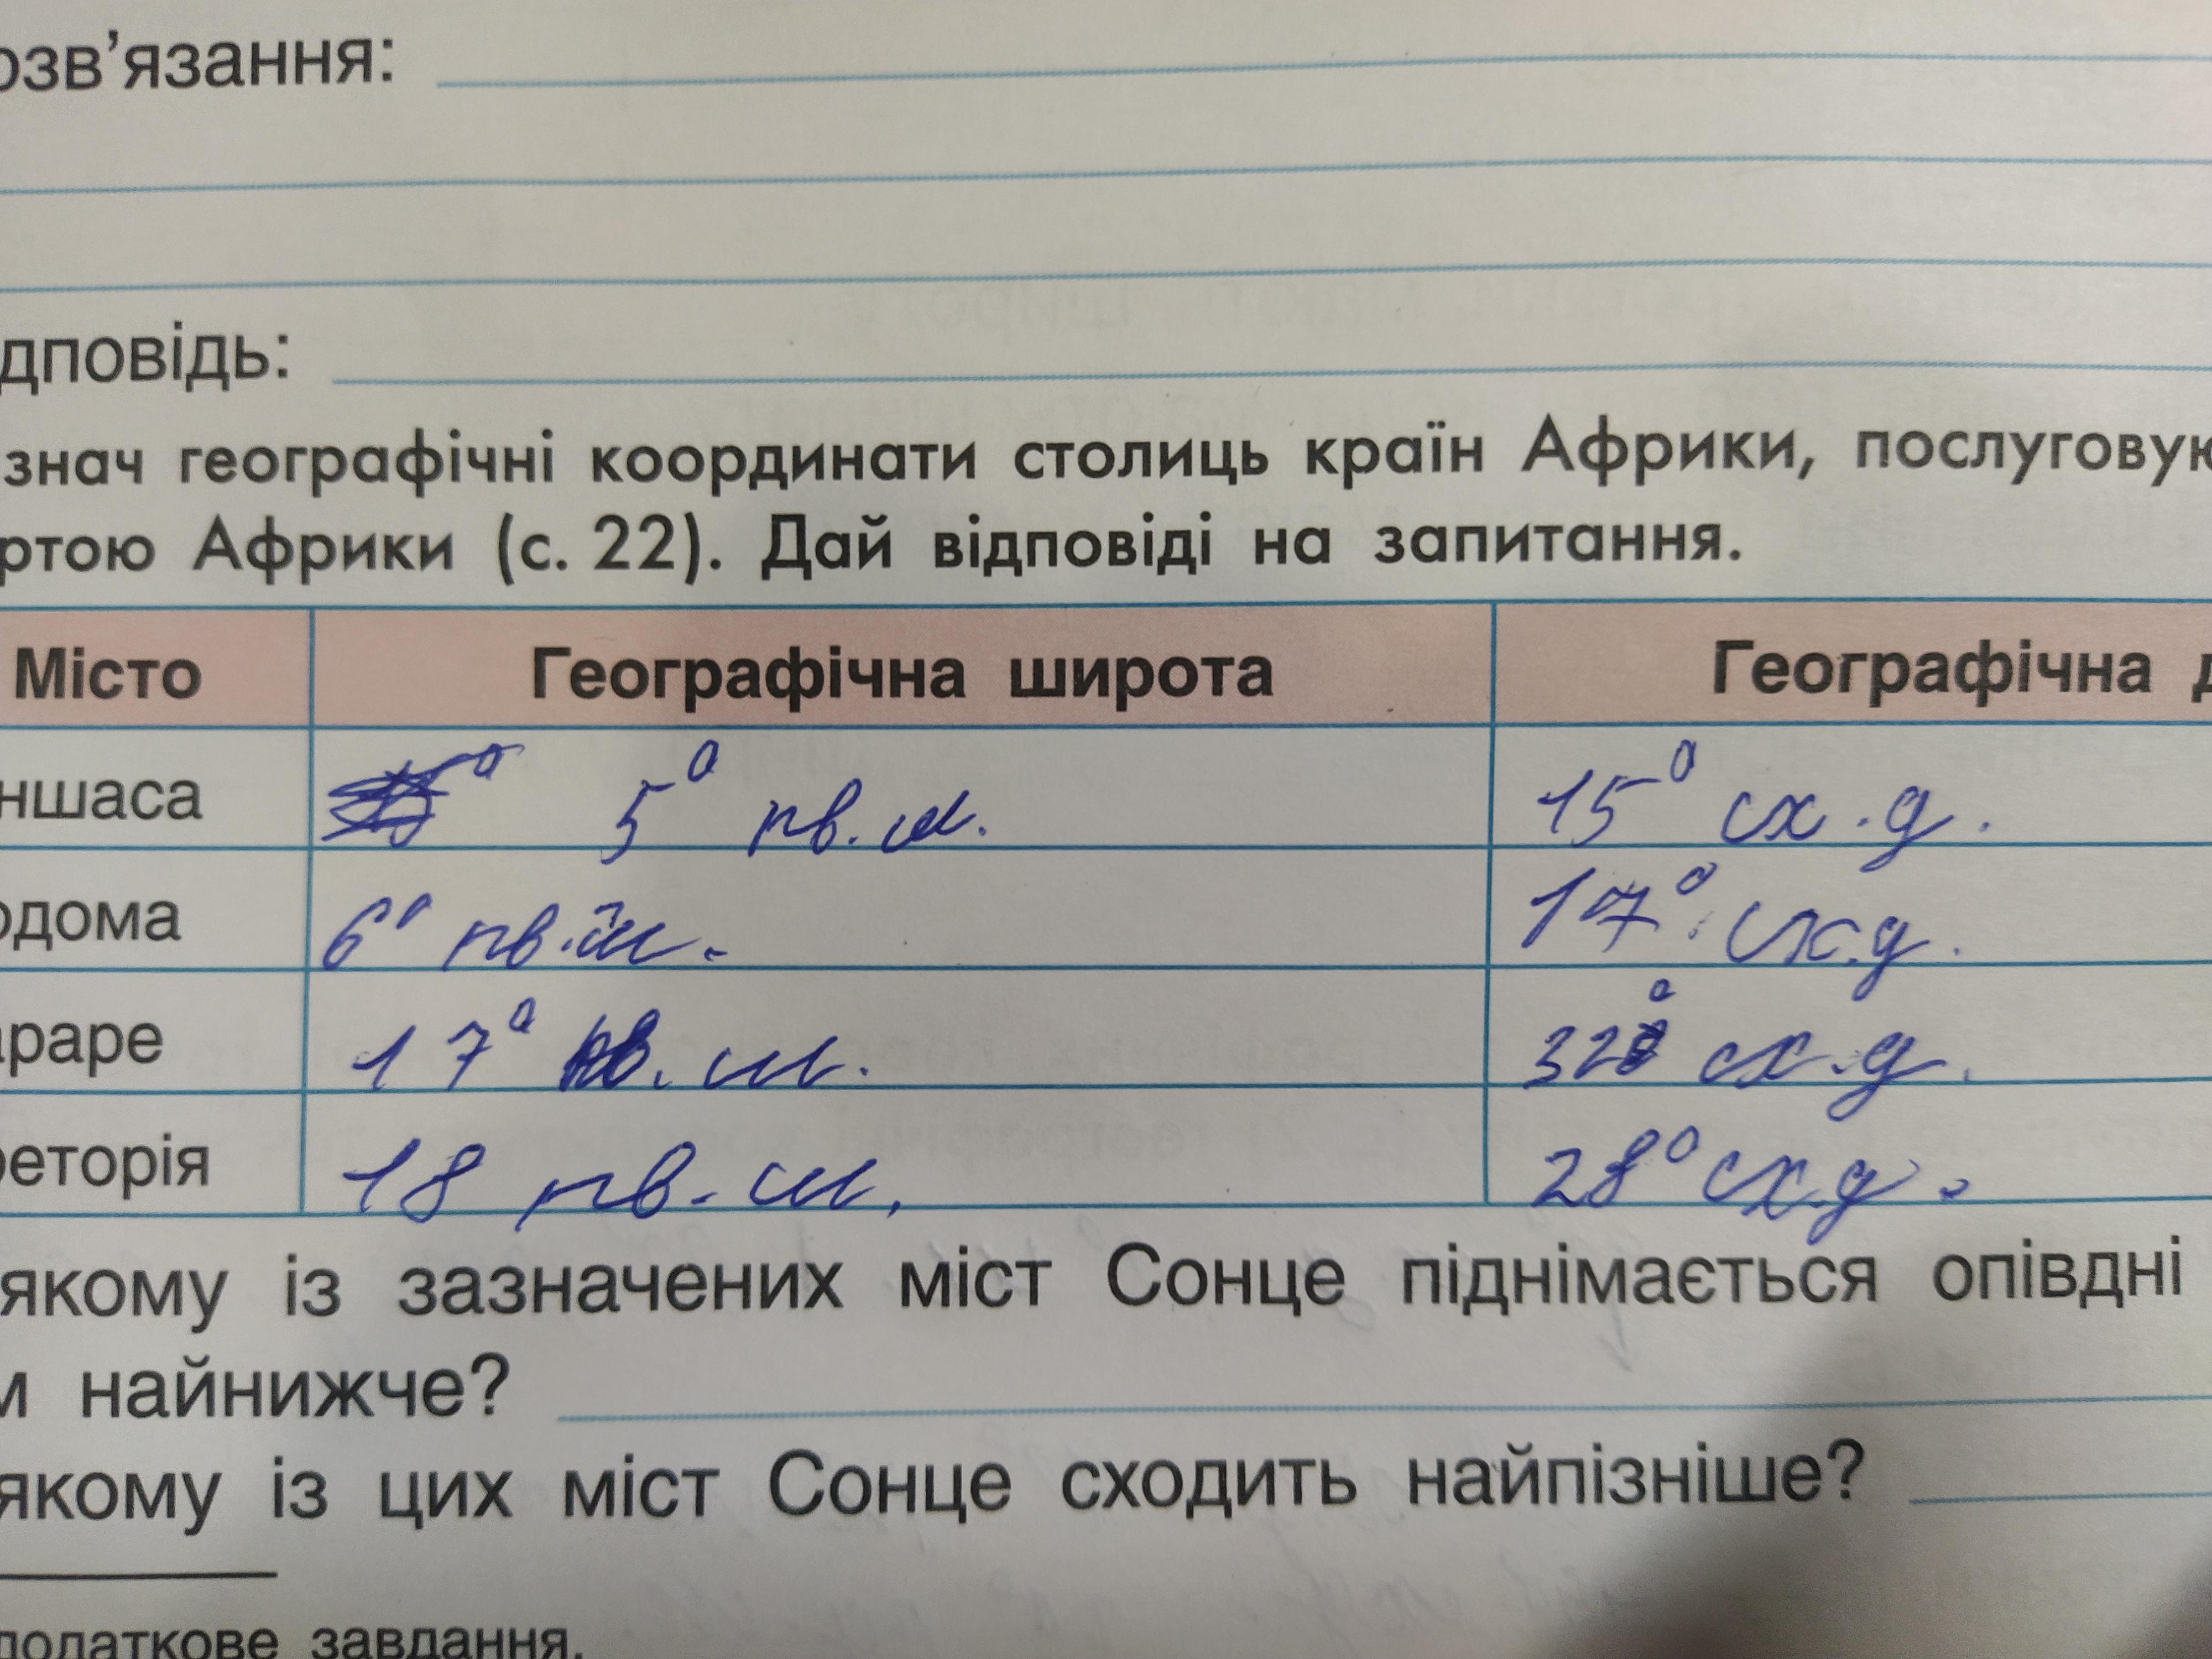 озв’язання:
дповідь:
знач географічні координати столиць країн Африки, послуговую
ртою Африки (с. 22). Дай відповіді на запитання.
Місто Географічна широта Географічна д
ншаса 5° пв. ш. 15° сх. д.
одома 6° пв. ш. 17° сх. д.
араре 17° пв. ш. 32° сх. д.
реторія 18 пв. ш. 28° сх. д.
якому із зазначених міст Сонце піднімається опівдні
м найнижче?
якому із цих міст Сонце сходить найпізніше?
додаткове завдання.